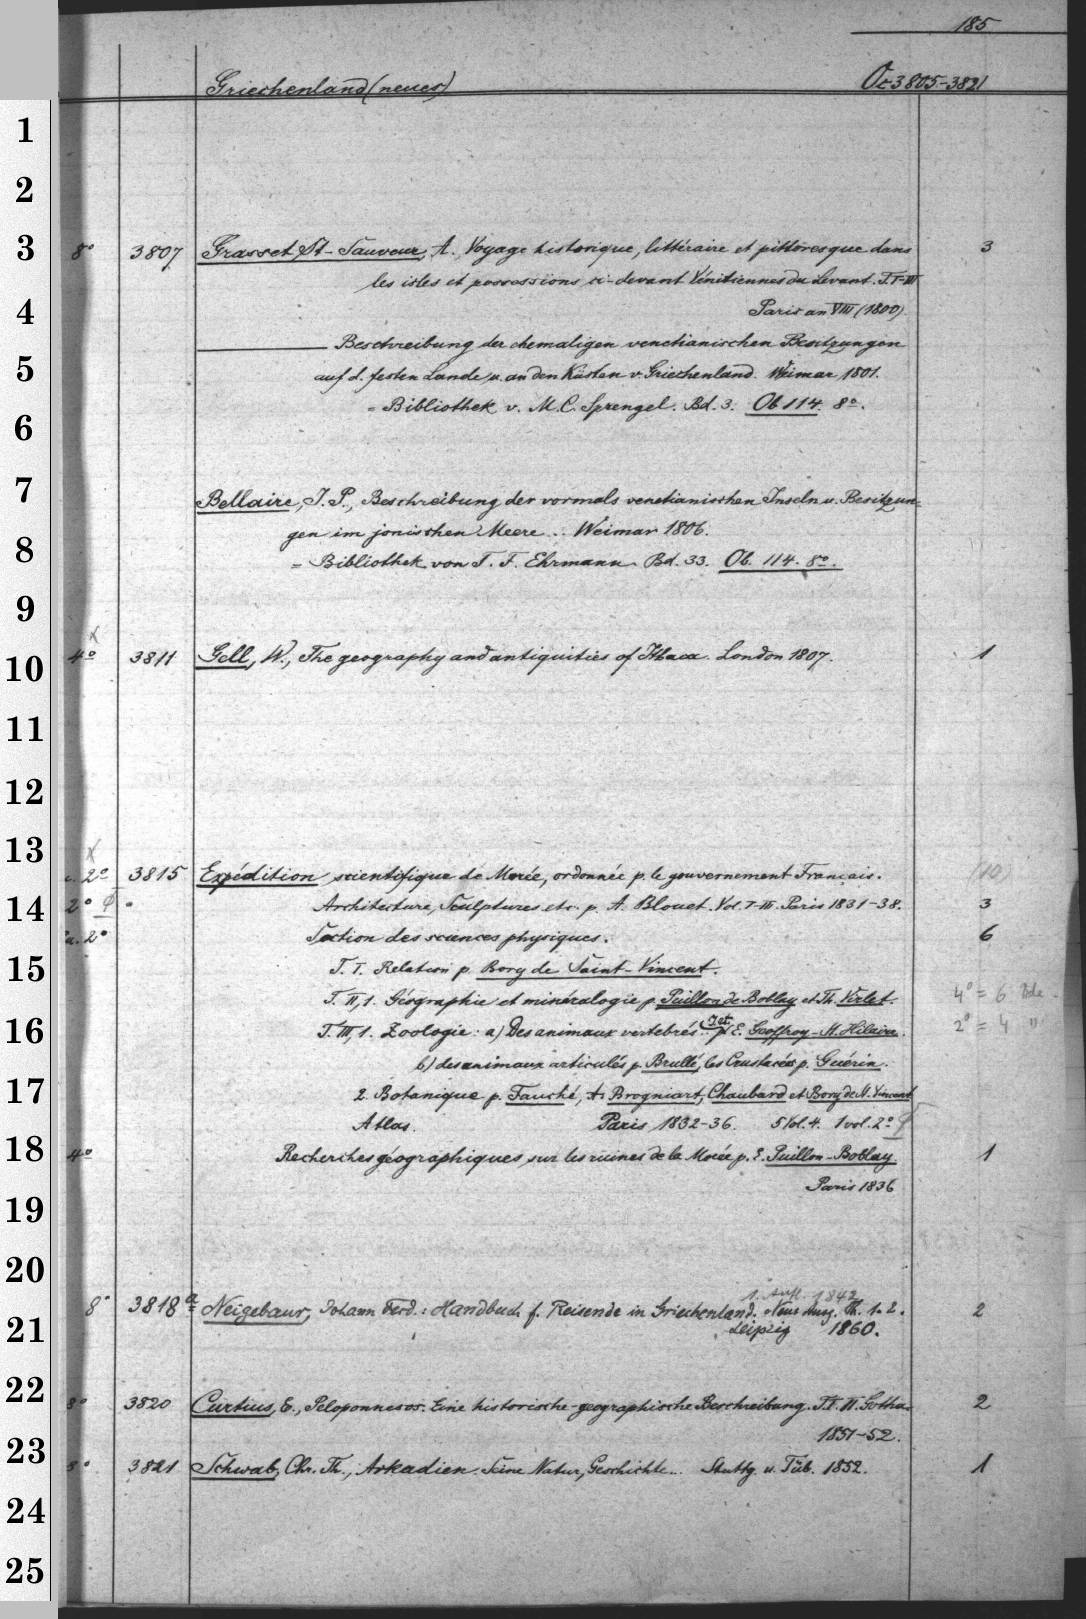 185
Griechenland (neues) Oc 3805-3821
1
2
3 8° 3807 Grasset St-Sauveur, A., Voyage historique, littéraire et pittoresque dans 3
les isles et possessions ci-devant Vénitiennes du Levant. T. I-III
4 Paris an VIII (1800)
Beschreibung der ehemaligen venetianischen Besitzungen
5 auf d. festen Lande u. an den Küsten v. Griechenland. Weimar 1801.
6 = Bibliothek v. M. C. Sprengel. Bd. 3. Ob 114. 8°.
7 Bellaire, J. P., Beschreibung der vormals venetianischen Inseln u. Besitzun-
gen im jonischen Meere .. Weimar 1806.
8 = Bibliothek von T. F. Ehrmann. Bd. 33. Ob. 114. 8°.
9
10 4° 3811 Gell, W., The geography and antiquities of Ithaca. London 1807. 1
11
12
13 2° 3815 Expédition scientifique de Morée, ordonnée p. le gouvernement Français. (10)
14 2° Architecture, Sculptures etc. p. A. Blouet. Vol. I-III. Paris 1831-38. 3
2° Section des sciences physiques. 6
15 T. I. Relation p. Bory de Saint-Vincent.
T. II, 1. Géographie et minéralogie p. Puillon de Boblay et Th. Virlet. 4° = 6 Bde.
16 T. III, 1. Zoologie: a) Des animaux vertebrés .. p. I. et E. Geoffroy-St. Hilaire. 2° = 4 "
b) des animaux articulés p. Brullé, les Crustacées p. Guérin.
17 2. Botanique p. Fauché, A. Brogniart, Chaubard et Bory de St. Vincent
Atlas. Paris 1832-36. 5 Vol. 4. 1 vol. 2°
18 4° Recherches géographiques sur les ruines de la Morée p. E. Puillon-Boblay 1
Paris 1836
19
20
1. Aufl. 1842
8° 3818a Neigebaur, Johann Ferd.: Handbuch f. Reisende in Griechenland. Neue Ausg. Th. 1. 2. 2
21 Leipzig 1860.
22 8° 3820 Curtius, E., Peloponnesos. Eine historische-geographische Beschreibung. T. I. II. Gotha 2
1851-52.
23 8° 3821 Schwab, Chr. Th., Arkadien. Seine Natur, Geschichte.. Stuttg. u. Tüb. 1852. 1
24
25